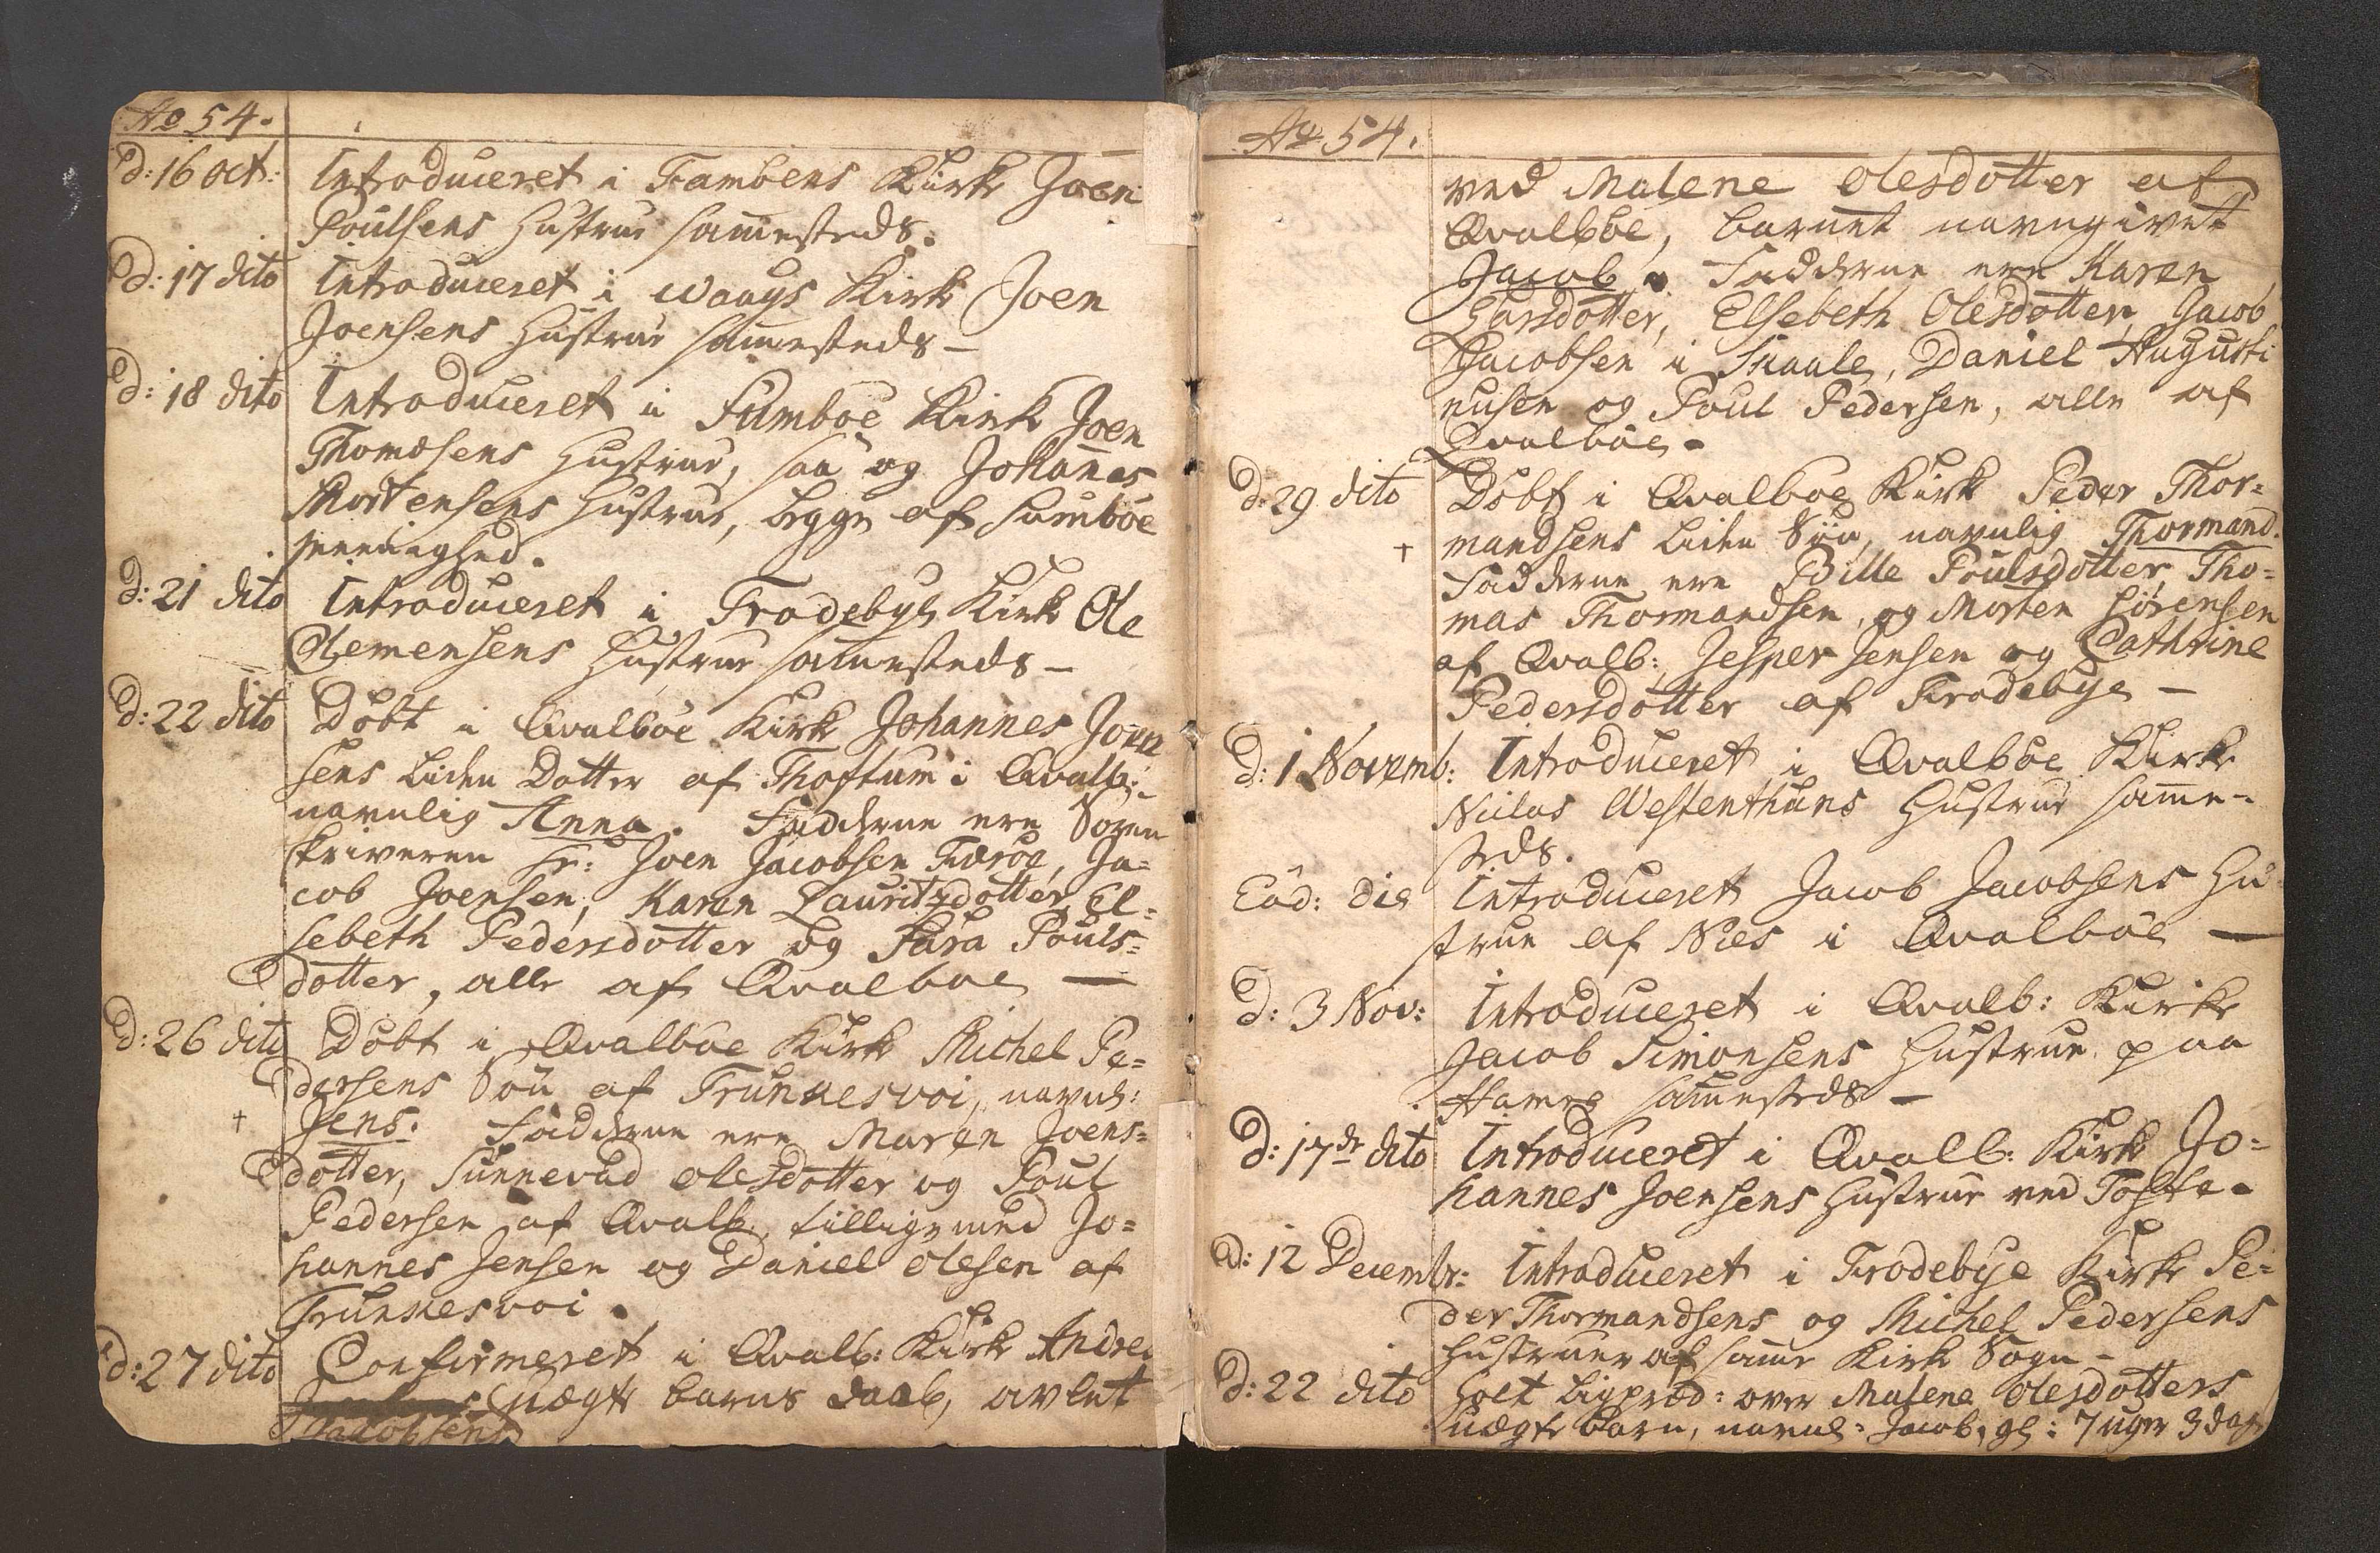 Ao 54.
d: 16 oct: Introduceret i Fambens Kirke Joen
Poulsens Hustrue sammesteds.
d: 17 dito Introduceret i Waags Kirke Joen
Joensens Hustrue sammesteds –
d: 18 dito Introduceret i Sumböe Kirke Joen
Thomæsens Hustrue, saa og Johannes
Mortensens Hustrue, begge af Sumböe
meenighed.
d: 21 dito Introduceret i Frodebÿe Kirke Ole
Clemensens Hustrue sammesteds –
d: 22 dito Döbt i Qvalböe Kirke Johannes Joen
sens liden Dotter af Thoftum i Qvalb:
navnlig Anna. Fadderne ere Soren
skriveren Sr: Joen Jacobsen Færöe, Ja=
cob Joensen, Karen Lauritzdotter, El=
sebeth Pedersdotter og Sara Pouls=
dotter, alle af Qvalböe —
d: 26 dito Döbt i Qvalböe Kirke Michel Pe=
dersens Sön af Trunnesvoi, navnl:
† Jens. Fadderne ere Maren Joens=
dotter, Sunnevad Olesdotter og Poul
Pedersen af Qvalb. tillige med Jo=
hannes Jensen og Daniel Olesen af
Trunnesvoi.
d: 27 dito Confirmeret i Qvalb: Kirke Andrea
Jacobsens uægte barns daab, avlet
Ao 54.
ved Malene Olesdotter af
Qvalböe, barnet navngivet
Jacob. Fadderne ere Karen
Harsdotter, Elsebeth Olesdotter, Jacob
Jacobsen i Skaale, Daniel Augusti
nusen og Poul Pedersen, alle af
Qvalböe.
d: 29 dito Döbt i Qvalböe Kirke Peder Thor=
† mandsens liden Sön, navnlig Thormand.
Fadderne ere Bille Poulsdotter, Tho=
mas Thormandsen, og Morten Sörensen
af Qvalb:, Jesper Jensen og Cathrine
Pedersdotter af Frodebÿe –
d: 1 Novemb: Introduceret i Qvalböe Kirke
Niclas Westenthans Hustrue samme-
steds.
Eod: die Introduceret Jacob Jacobsens Hu
strue af Nies i Qvalböe —
d: 3 Nov: Introduceret i Qvalb: Kirke
Jacob Simonsens Hustrue paa
Hamre sammesteds –
d: 17de dito Introduceret i Qvalb: Kirke Jo=
hannes Joensens Hustrue ved Tofte.
d: 12 Decembr: Introduceret i Frodebÿe Kirke Pe=
der Thormandsens og Michel Pedersens
Hustruer af samme Kirke Sogn –
d: 22 dito holt ligpræd: over Malene Olesdotters
uægte barn, navnl: Jacob, gl: 7 uger 3 dage